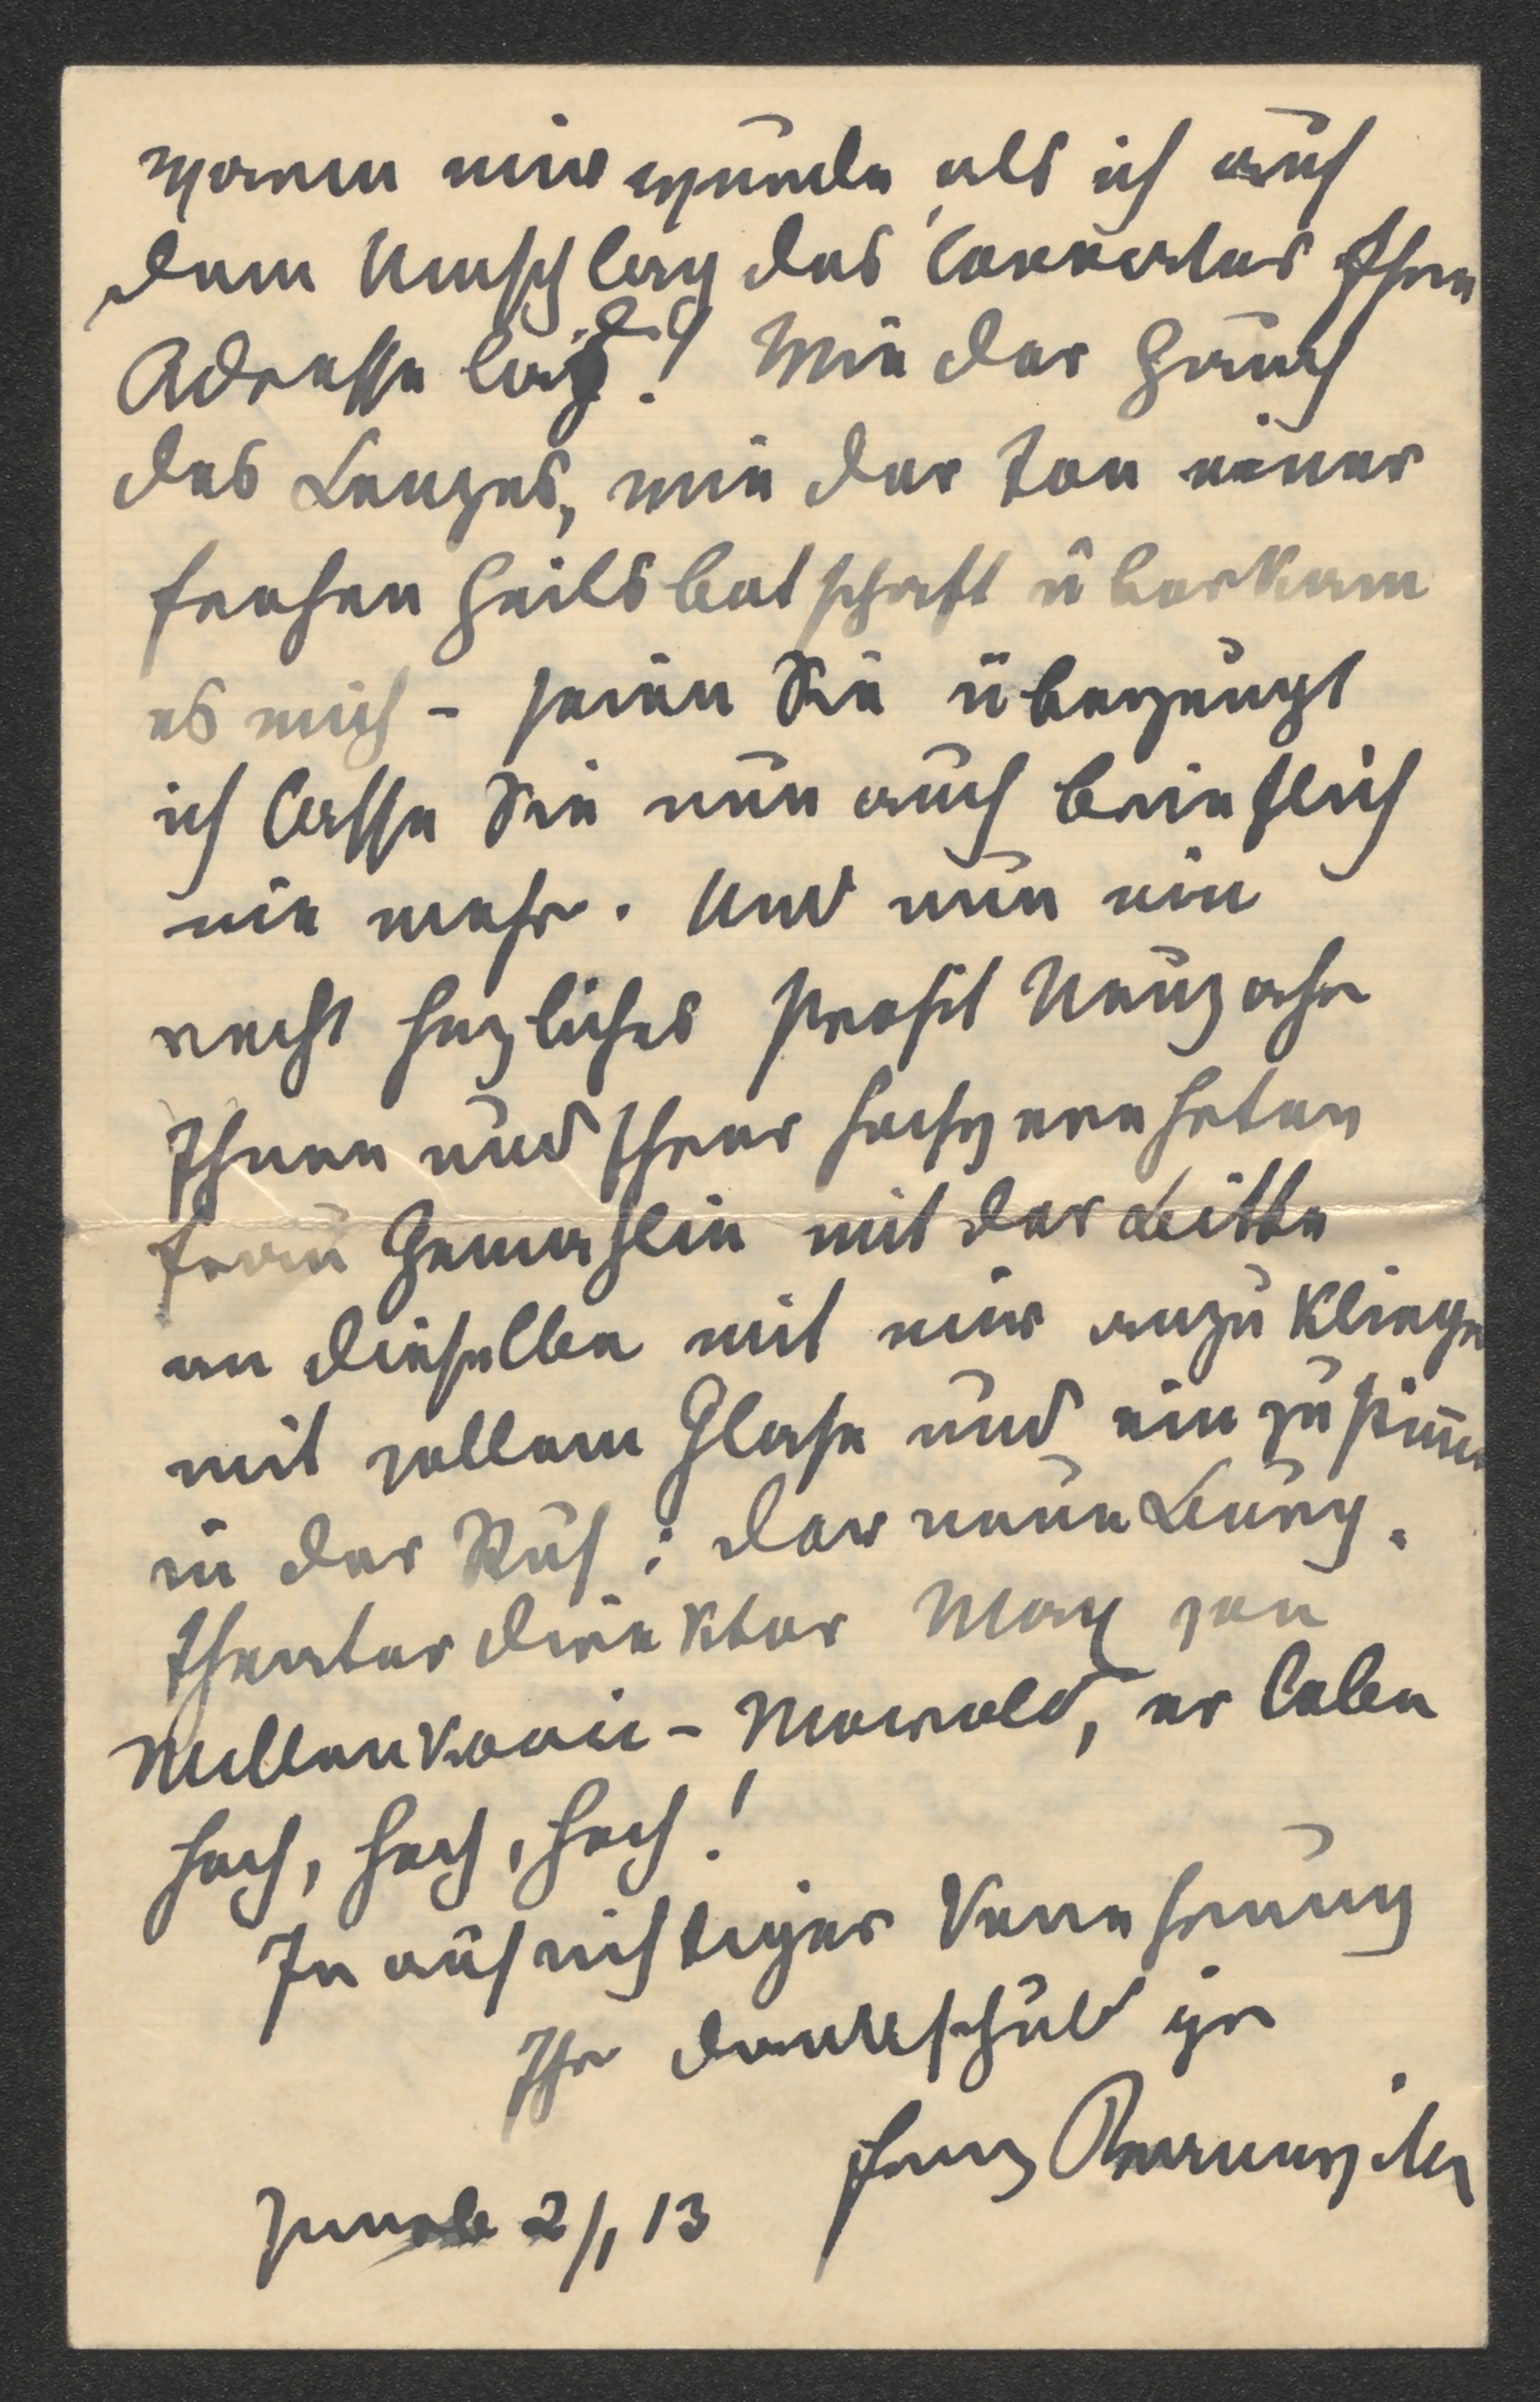 warm mir wurde, als ich auf
dem Umschlag des Couvertes Ihre
Adresse las! Wie der Hauch
des Lenzes, wie der Ton einer
frohen Heilsbotschaft überkam
es mich - seien Sie überzeugt
ich lasse Sie nun auch brieflich
nie mehr. Und nun ein
recht herzliches Prosit Neujahr
Ihnen und Ihrer hochverehrten
Frau Gemahlin mit der Bitte
an dieselbe mit mir anzuklingen
mit vollem Glase und einzustimmen
in der Ruf: der neue Burg.
theaterdirektor Max von
Millenkovic-Morold, er lebe
hoch, hoch, hoch!
In aufrichtiger Verehrung
Ihr dankschuldiger
Franz
2/1 13